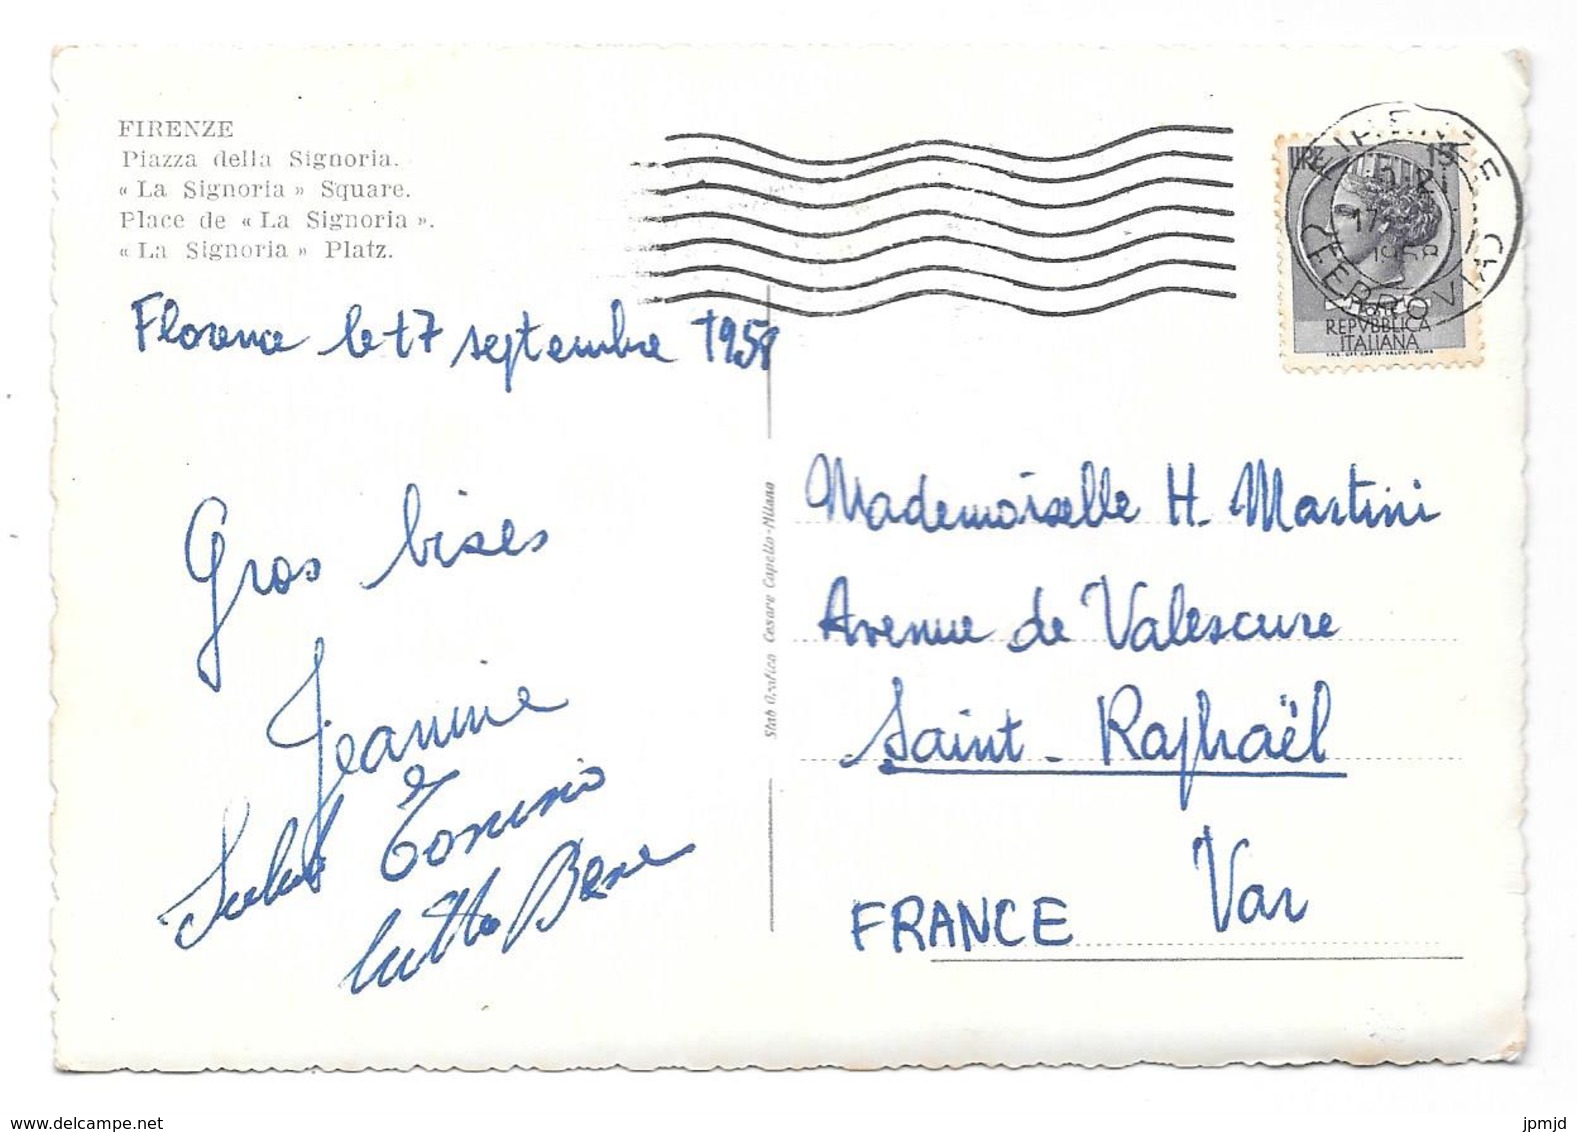 FIRENZE
Piazza della Signoria.
« La Signoria » Square.
Place de « La Signoria ».
« La Signoria » Platz.
Florence le 17 septembre 1958
Gros bises
Jeanine
e
Salut Tonino
tutto Bene
Stab Grafico Cesare Capello - Milano
LIRE 15
REPVBBLICA
ITALIANA
FIRENZE
17
1958
FERROVIA
Mademoiselle H. Martini
Avenue de Valescure
Saint-Raphaël
Var
FRANCE
www.delcampe.net
jpmjd